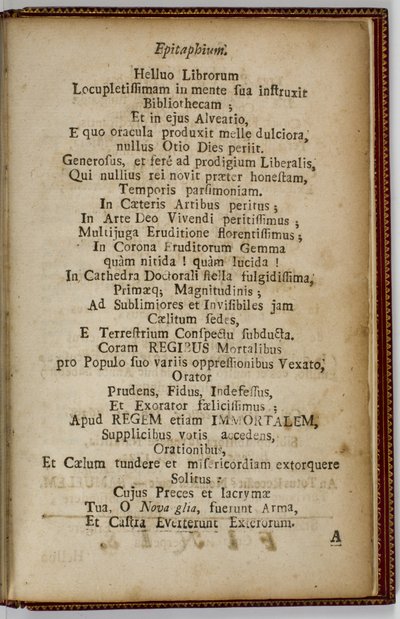 Epitaphium.
Helluo Librorum
Locupletissimam in mente sua instruxit
Bibliothecam ;
Et in ejus Alveatio,
E quo oracula produxit melle dulciora,
nullus Otio Dies periit.
Generosus, et ferè ad prodigium Liberalis,
Qui nullius rei novit præter honestam,
Temporis parsimoniam.
In Cæteris Artibus peritus ;
In Arte Deo Vivendi peritissimus ;
Multijuga Eruditione florentissimus ;
In Corona Eruditorum Gemma
quàm nitida ! quàm lucida !
In Cathedra Doctorali stella fulgidissima,
Primæq; Magnitudinis ;
Ad Sublimiores et Invisibiles jam
Cælitum sedes,
E Terrestrium Conspectu subducta.
Coram REGIBUS Mortalibus
pro Populo suo variis oppressionibus Vexato,
Orator
Prudens, Fidus, Indefessus,
Et Exorator fælicissimus ;
Apud REGEM etiam IMMORTALEM,
Supplicibus votis accedens,
Orationibus,
Et Cælum tundere et misericordiam extorquere
Solitus :
Cujus Preces et lacrymæ
Tua, O Nova glia, fuerunt Arma,
Et Castra Everterunt Exterorum.
A